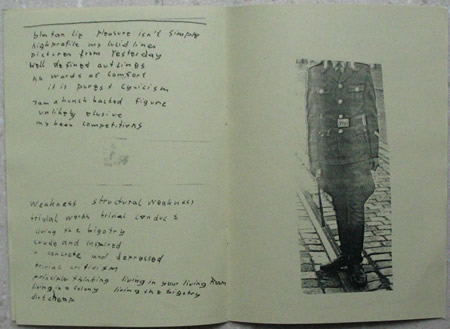 pleasure isn't simple
high profile my lucid lines
pictures from yesterday
well defined outlines
no words of comfort
it is purest cynicism
I am a hunch backed figure
unlikely elusive
my been competitions
Weakness structural weakness
trivial words trivial conduct
living the bigotry
crude and inspired
concrete and depressed
trivial criticism
principle thinking living in your living room
living in a colony living the bigotry
dirt cheap